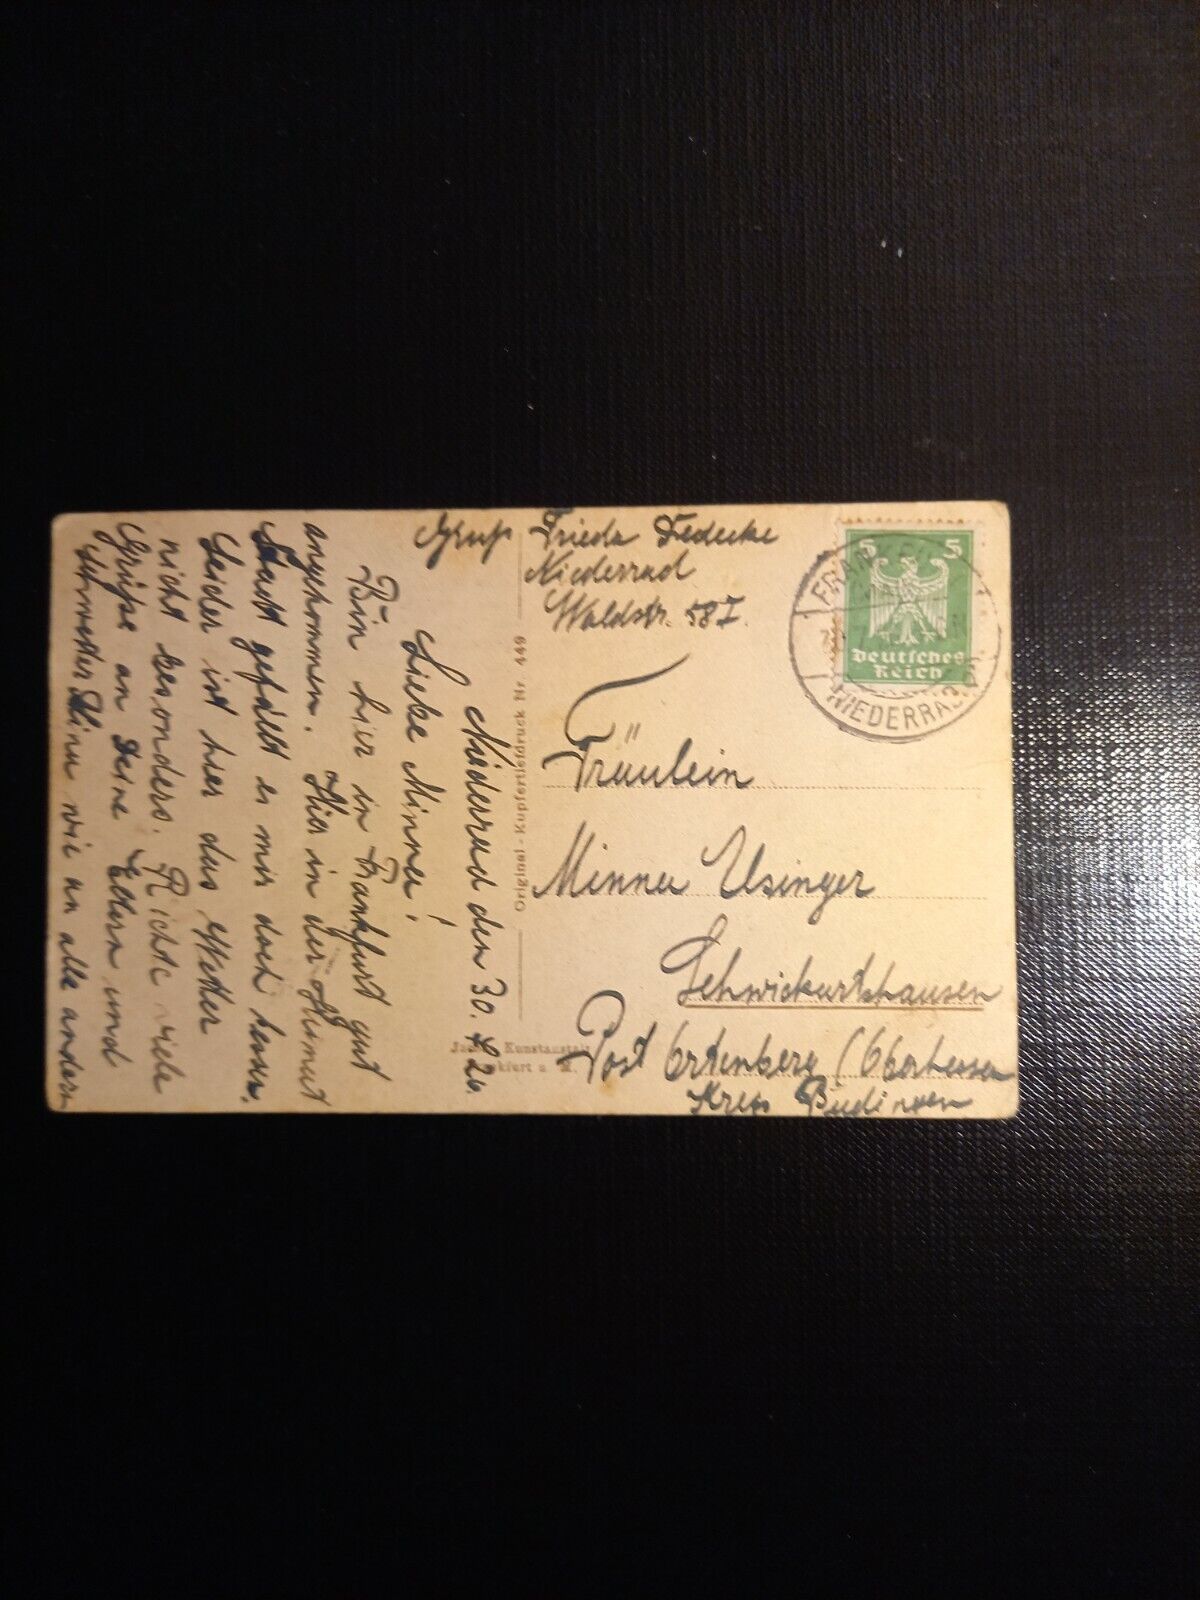 Niederrad den 30.
26.
Liebe Minna!
Bin hier in Frankfurt gut
angekommen. Hier in der Heimat
Stadt gefällt es mir doch besser.
Leider ist hier das Wetter
nicht besonders. Richte viele
Grüße an Deine Eltern und
Schwester Dina wie an alle andern
Gruß Frieda Fedecke
Niederrad
Waldstr. 58 I.
Original-Kupfertiefdruck Nr. 449
Kunstanstalt
Frankfurt a. M.
5 5
Deutsches
Reich
FRANKFURT
NIEDERRAD
Fräulein
Minna Usinger
Schwickartshausen
Post Ortenberg (Oberhessen
Kreis Büdingen